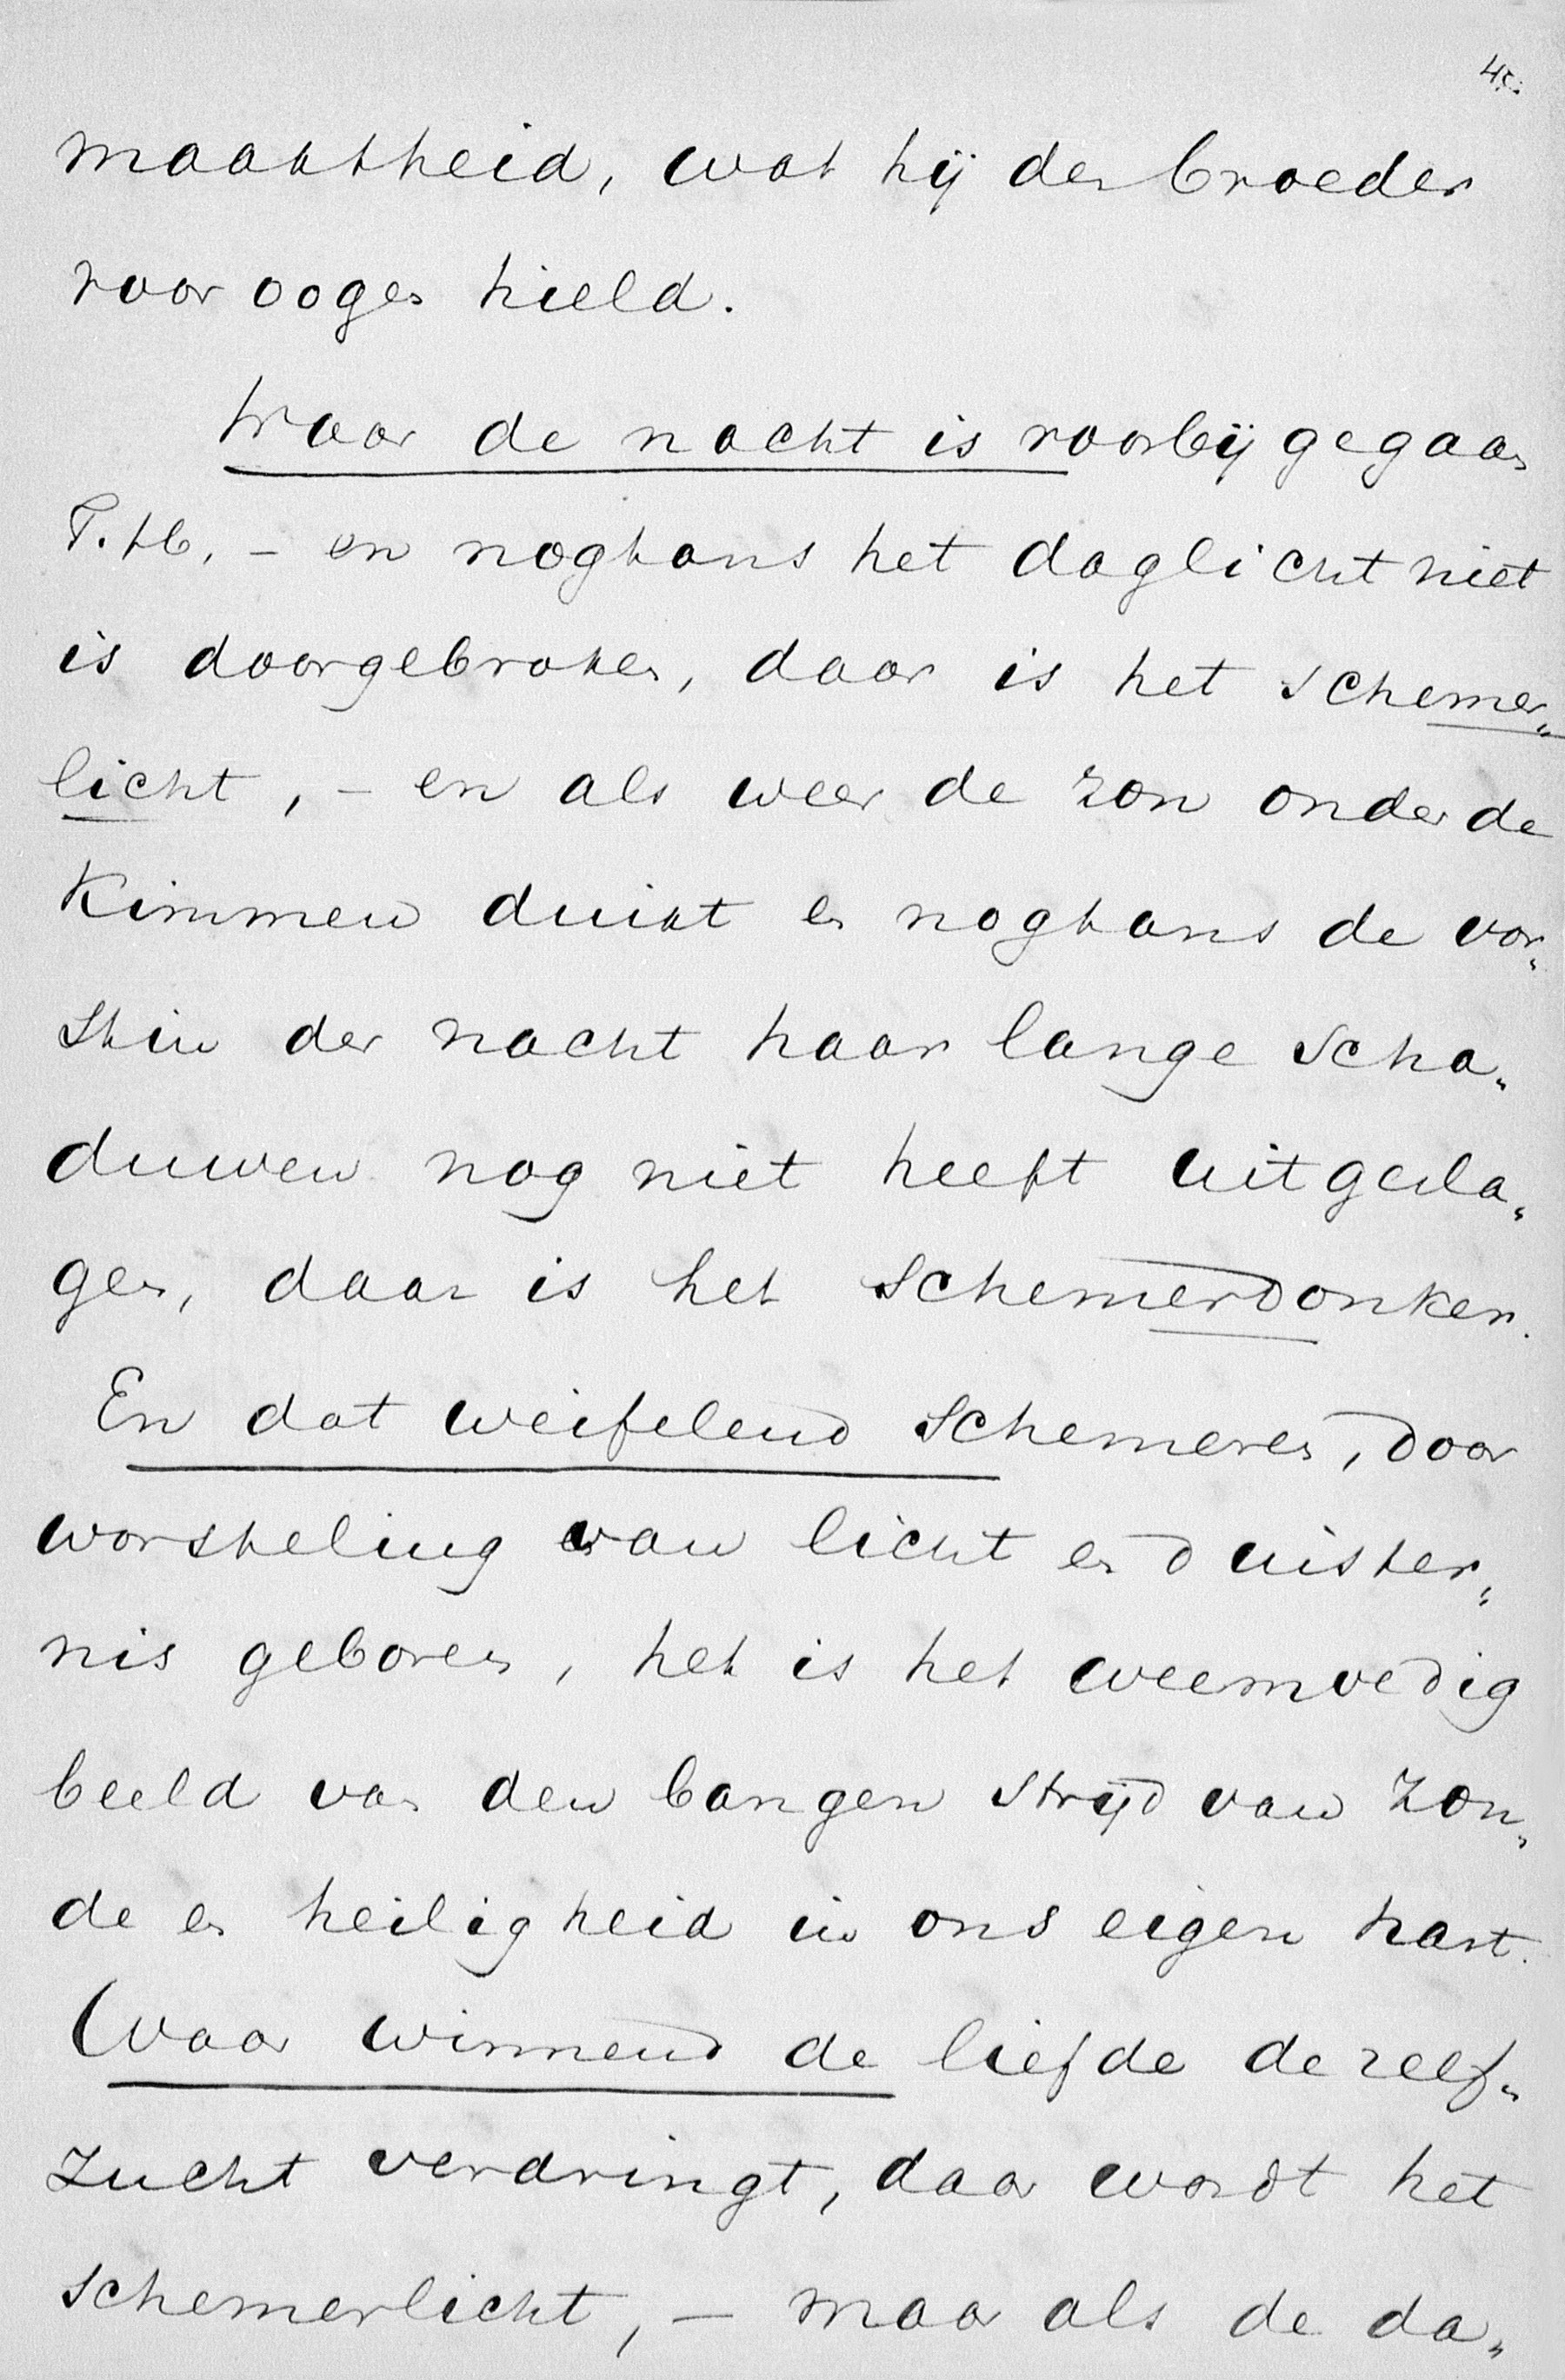 maaktheid, wat hij den broeder
voor oogen hield.
Waar de nacht is voorbij gegaan
T. H., – en nogtans het daglicht niet
is doorgebroken, daar is het schemer„
licht, – en als weer de zon onder de
Kimmen duikt en nogtans de vor„
stin der nacht haar lange scha„
duwen nog niet heeft uitgesla„
gen, daar is het schemerdonker.
En dat weifelend schemeren, door
worsteling van licht en duister„
nis geboren, het is het weemoedig
beeld van den bangen strijd van zon„
de en heiligheid in ons eigen hart.
Waar winnend de liefde de zelf„
zucht verdringt, daar wordt het
schemerlicht, – maar als de da„